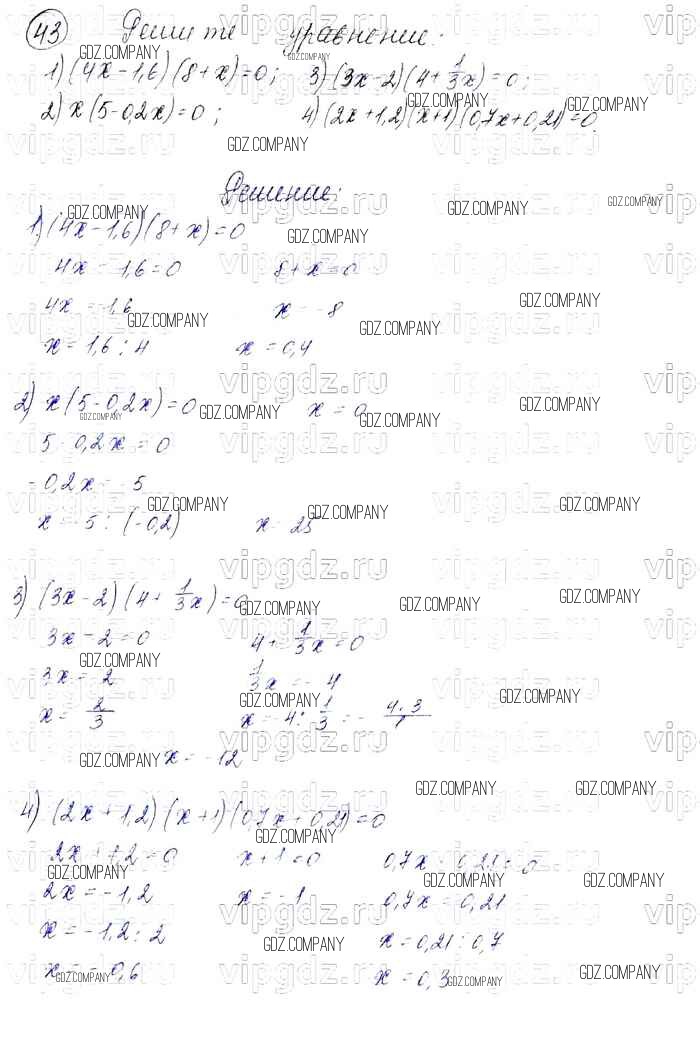 43 Решите уравнение:
1) (4x-1,6)(8+x)=0; 3) (3x-2)(4+1/3x)=0;
2) x(5-0,2x)=0; 4) (2x+1,2)(x+1)(0,7x+0,21)=0.
Решение:
1) (4x-1,6)(8+x)=0
4x-1,6=0 8+x=0
4x=1,6 x=-8
x=1,6:4 x=0,4
2) x(5-0,2x)=0 x=0
5-0,2x=0
-0,2x=-5
x=-5:(-0,2) x=25
3) (3x-2)(4+1/3x)=0
3x-2=0 4+1/3x=0
3x=2 1/3x=-4
x=2/3 x=-4:1/3=-4·3/1
x=-12
4) (2x+1,2)(x+1)(0,7x+0,21)=0
2x+1,2=0 x+1=0 0,7x 0,21=0
2x=-1,2 x=-1 0,7x=0,21
x=-1,2:2 x=0,21:0,7
x=-0,6 x=0,3
GDZ.COMPANY
vipgdz.ru